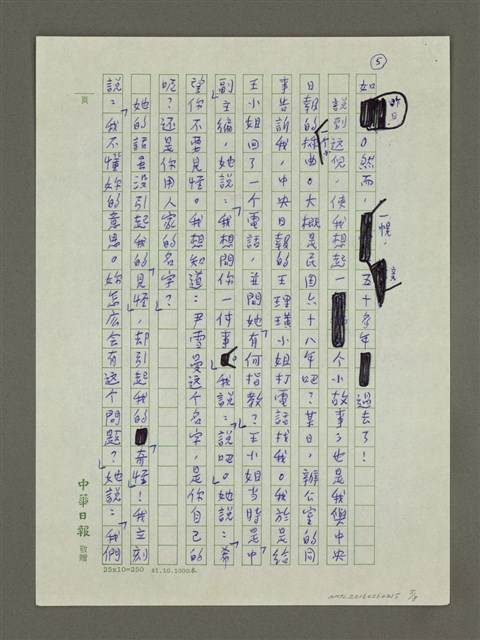 ⑤
如昨日。然而，一幌，竟五十多年過去了！
說到这兒，使我想起一个小故事；也是我與中央
日報的一个小插曲。大概是民國六十八年吧？某日，辦公室的同
事告訴我，中央日報的王理璜小姐打電話找我。我於是給
王小姐回了一个電話，並問她有何指教？王小姐当時是「中
副」主編，她說：「我想問你一件事。」我說：「說吧。」她說：「希
望你不要見怪。我想知道：尹雪曼这个名字，是你自己的
呢？还是你用人家的名字？」
她的話虽没引起我的見怪，却引起我的奇怪！我立刻
說：「我不懂妳的意思。妳怎広会有这个問題？」她說：「我們
頁
中華日報 敬贈
25×10=250 81.10.1000本
NMTL20160260215 5/8